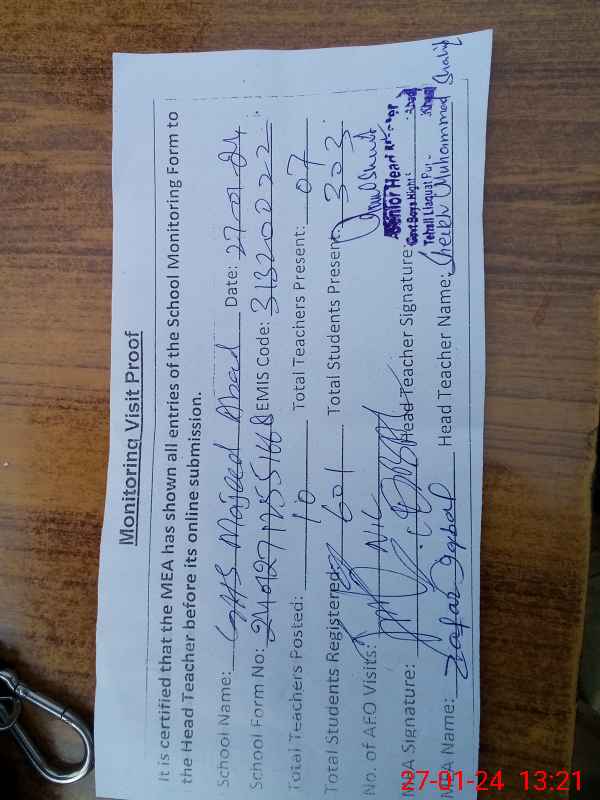 Monitoring Visit Proof
It is certified that the MEA has shown all entries of the School Monitoring Form to
the Head Teacher before its online submission.
School Name: GHS Majeed Abad Date: 27-01-24
School Form No: EMIS Code: 31320022
Total Teachers Posted: 10 Total Teachers Present: 07
Total Students Registered: 601 Total Students Present: 303
No. of AFO Visits: NIL
MEA Signature: Head Teacher Signature:
Senior Head
Govt. Boys High
Tehsil Liaquat Pur
MEA Name: Zafar Iqbal Head Teacher Name: Sheikh Muhammad
27-01-24 13:21